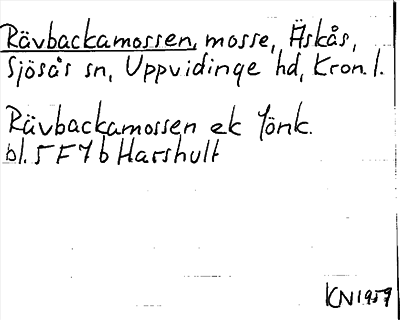 Rävbackamossen, mosse, Äskås,
Sjösås sn, Uppvidinge hd, Kron. l.
Rävbackamossen ek Jönk.
bl. 5 F 7 b Harshult
KN 1959